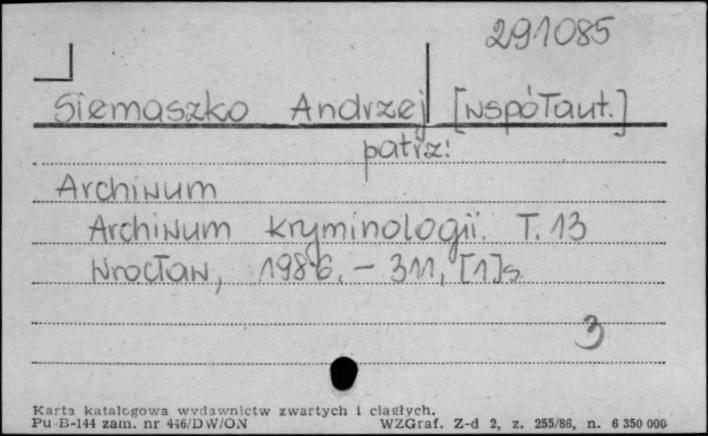 291085
Siemaszko Andrzej [współaut.]
patrz:
Archiwum
Archiwum kryminologii. T. 13
Wrocław, 1986. – 311, [1]s.
3
Karta katalogowa wydawnictw zwartych i ciągłych.
Pu-B-144 zam. nr 446/DW/ON WZGraf. Z-d 2, z. 255/86, n. 6 350 000